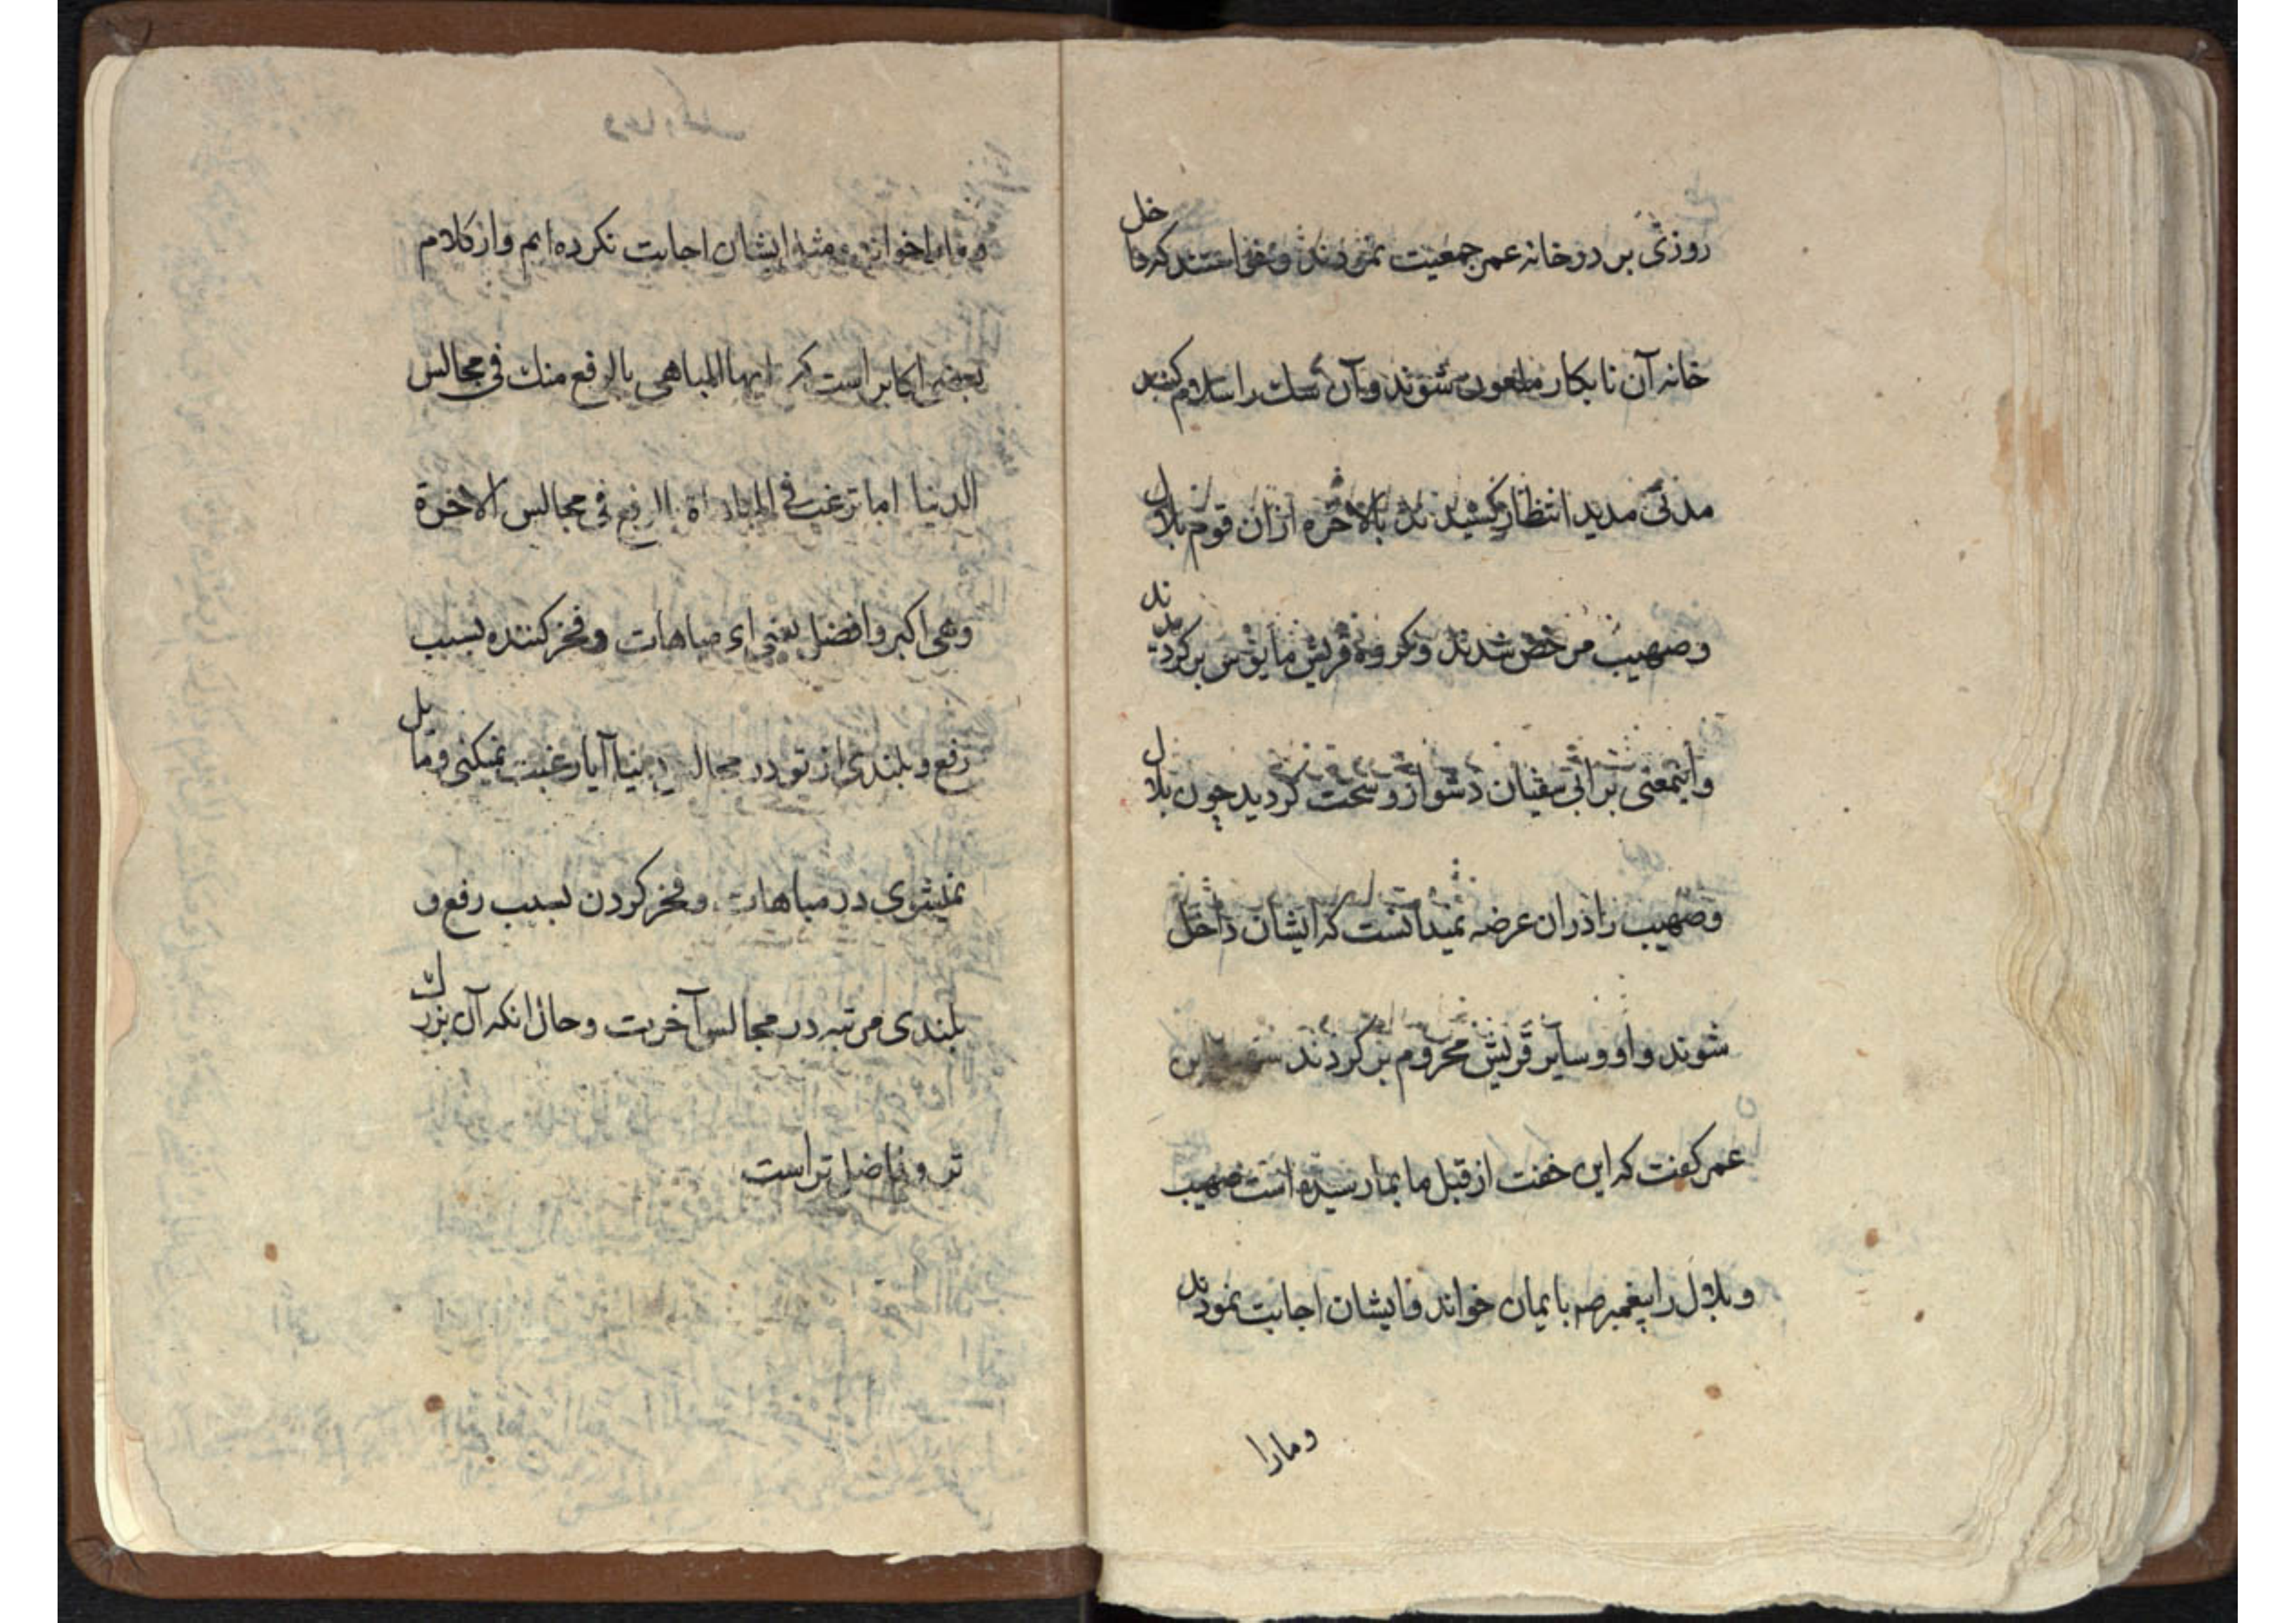 روزی بر در خانه عمر جمعیت نمودند و خواستند که داخل
خانه آن نابکار ملعون شوند و آن سک را سلام کنند
مدتی مدید انتظار کشیدند بالاخره از ان قوم بلال
و صهیب مرخص شدند و کروه قریش مأیوس برکردیدند
و اینمعنی بر ابی سفیان دشوار و سخت کردید چون بلال
و صهیب را در ان عرضه نمیدانست که ایشان داخل
شوند و او و سایر قریش محروم برکردند
عمر کفت که این خفت از قبل ما بما رسیده است صهیب
و بلال را پیغمبر ص بایمان خواند و ایشان اجابت نمودند
و مارا
و مارا خواند مثل ایشان اجابت نکرده ایم و از کلام
بعضی اکابر است که ایها المباهی بالرفع منك فی مجالس
الدنیا اما ترغب فی المباهاة بالرفع فی مجالس الاخرة
وهی اکبر وافضل یعنی ای مباهات و فخر کننده بسبب
رفع و بلندی از تو در مجالس دنیا آیا رغبت نمیکنی و مایل
نمیشوی در مباهات و فخر کردن بسبب رفع و
بلندی مرتبه در مجالس آخرت و حال انکه آن بزرك
تر و فاضل تر است